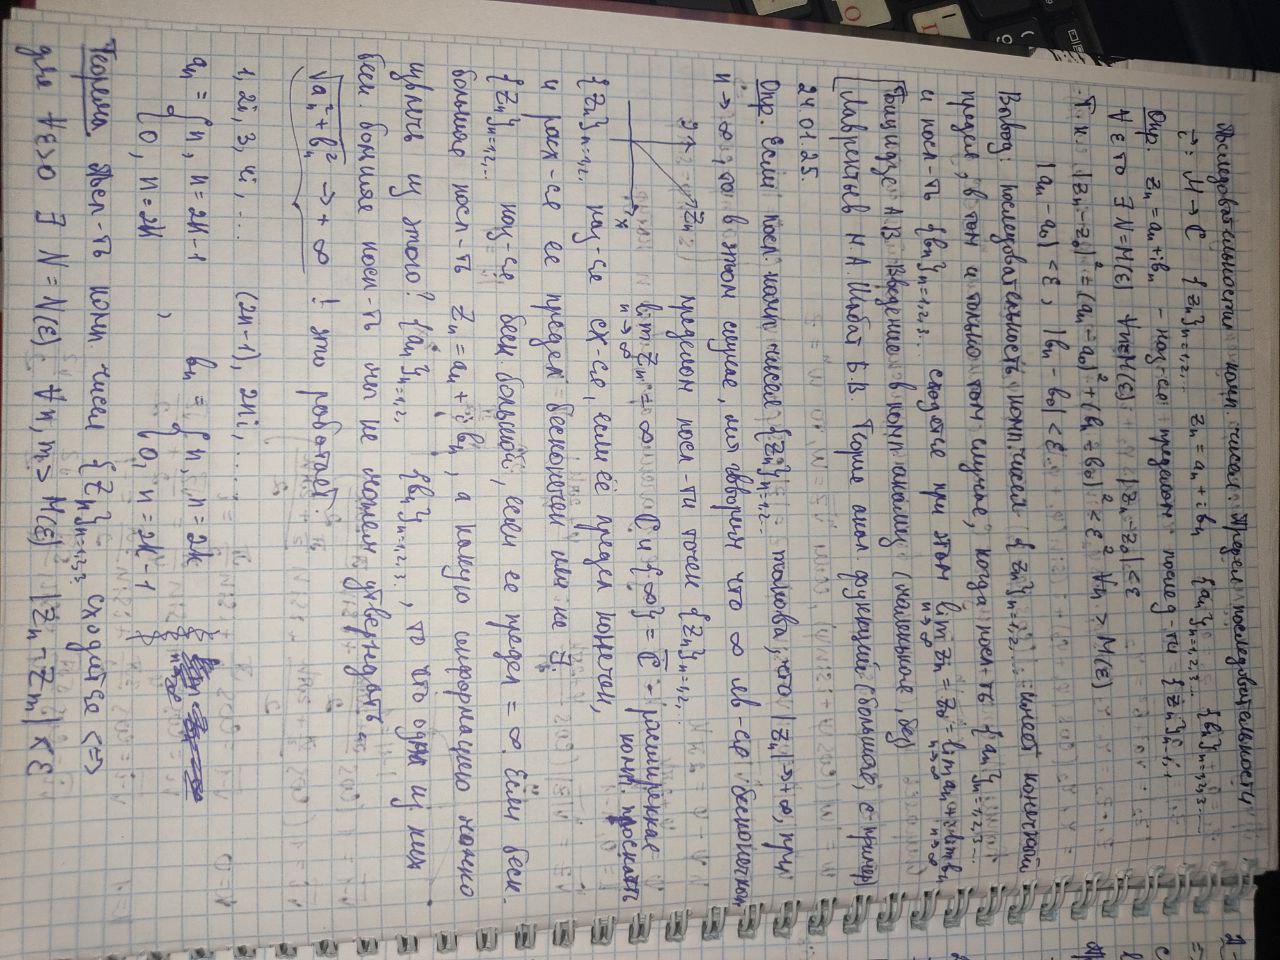 Последовательности комп. чисел. Предел последовательности
n: N → C {Zn}n=1,2,... Zn = an + i bn {an}n=1,2,3... {bn}n=1,2,3...
Опр. Zn = an + i bn - наз-ся пределом послед-ти {Zn}n=1
∀ε>0 ∃N=N(ε) ∀n>N(ε) |Zn - Z0| < ε
Т.к. |Zn - Z0|² = (an - a0)² + (bn - b0)² < ε² ∀n > N(ε)
|an - a0| < ε, |bn - b0| < ε
Вывод: последовательность комп. чисел {Zn}n=1,2,... имеет конечный
предел, в том и только том случае, когда посл-ть {an}n=1,2,3...
и посл-ть {bn}n=1,2,3... сходятся при этом lim n→∞ Zn = Z0 = lim n→∞ an + i lim n→∞ bn
Введение в комп. анализ (маленькое, без
Лаврентьев М.А. Шабат Б.В. Теория функций большая, с
24.01.25.
Опр. Если посл. комп. чисел {Zn}n=1,2,... такова, что |Zn| → +∞, при
n → ∞, то в этом случае, мы говорим что ∞ яв-ся бесконечным
пределом посл-ти точек {Zn}n=1,2,...
Zn
x
lim n→∞ Zn = ∞ C ∪ {∞} = C̄ - расширенная
комп. плоскость
{Zn}n=1,2, наз-ся сх-ся, если её предел конечен,
и расх-ся ее предел бесконечен или не ∃.
{Zn}n=1,2,... наз-ся беск. большой, если ее предел = ∞. Если беск.
большие посл-ть Zn = an + i bn, а какую информацию можно
узнать из этого? {an}n=1,2, {bn}n=1,2,3, то что одна из них
беск. большие посл-ть мы не можем утверждать.
√(an² + bn²) → +∞ ! это работает.
1, 2i, 3, 4i, ... (2n-1), 2ni, ...
an = { n, n=2k-1 bn = { n, n=2k
{ 0, n=2k , { 0, n=2k-1
Теорема Посл-ть комп. чисел {Zn}n=1,2,3, сходится <=>
для ∀ε>0 ∃ N = N(ε) ∀n, m > N(ε) |Zn - Zm| < ε